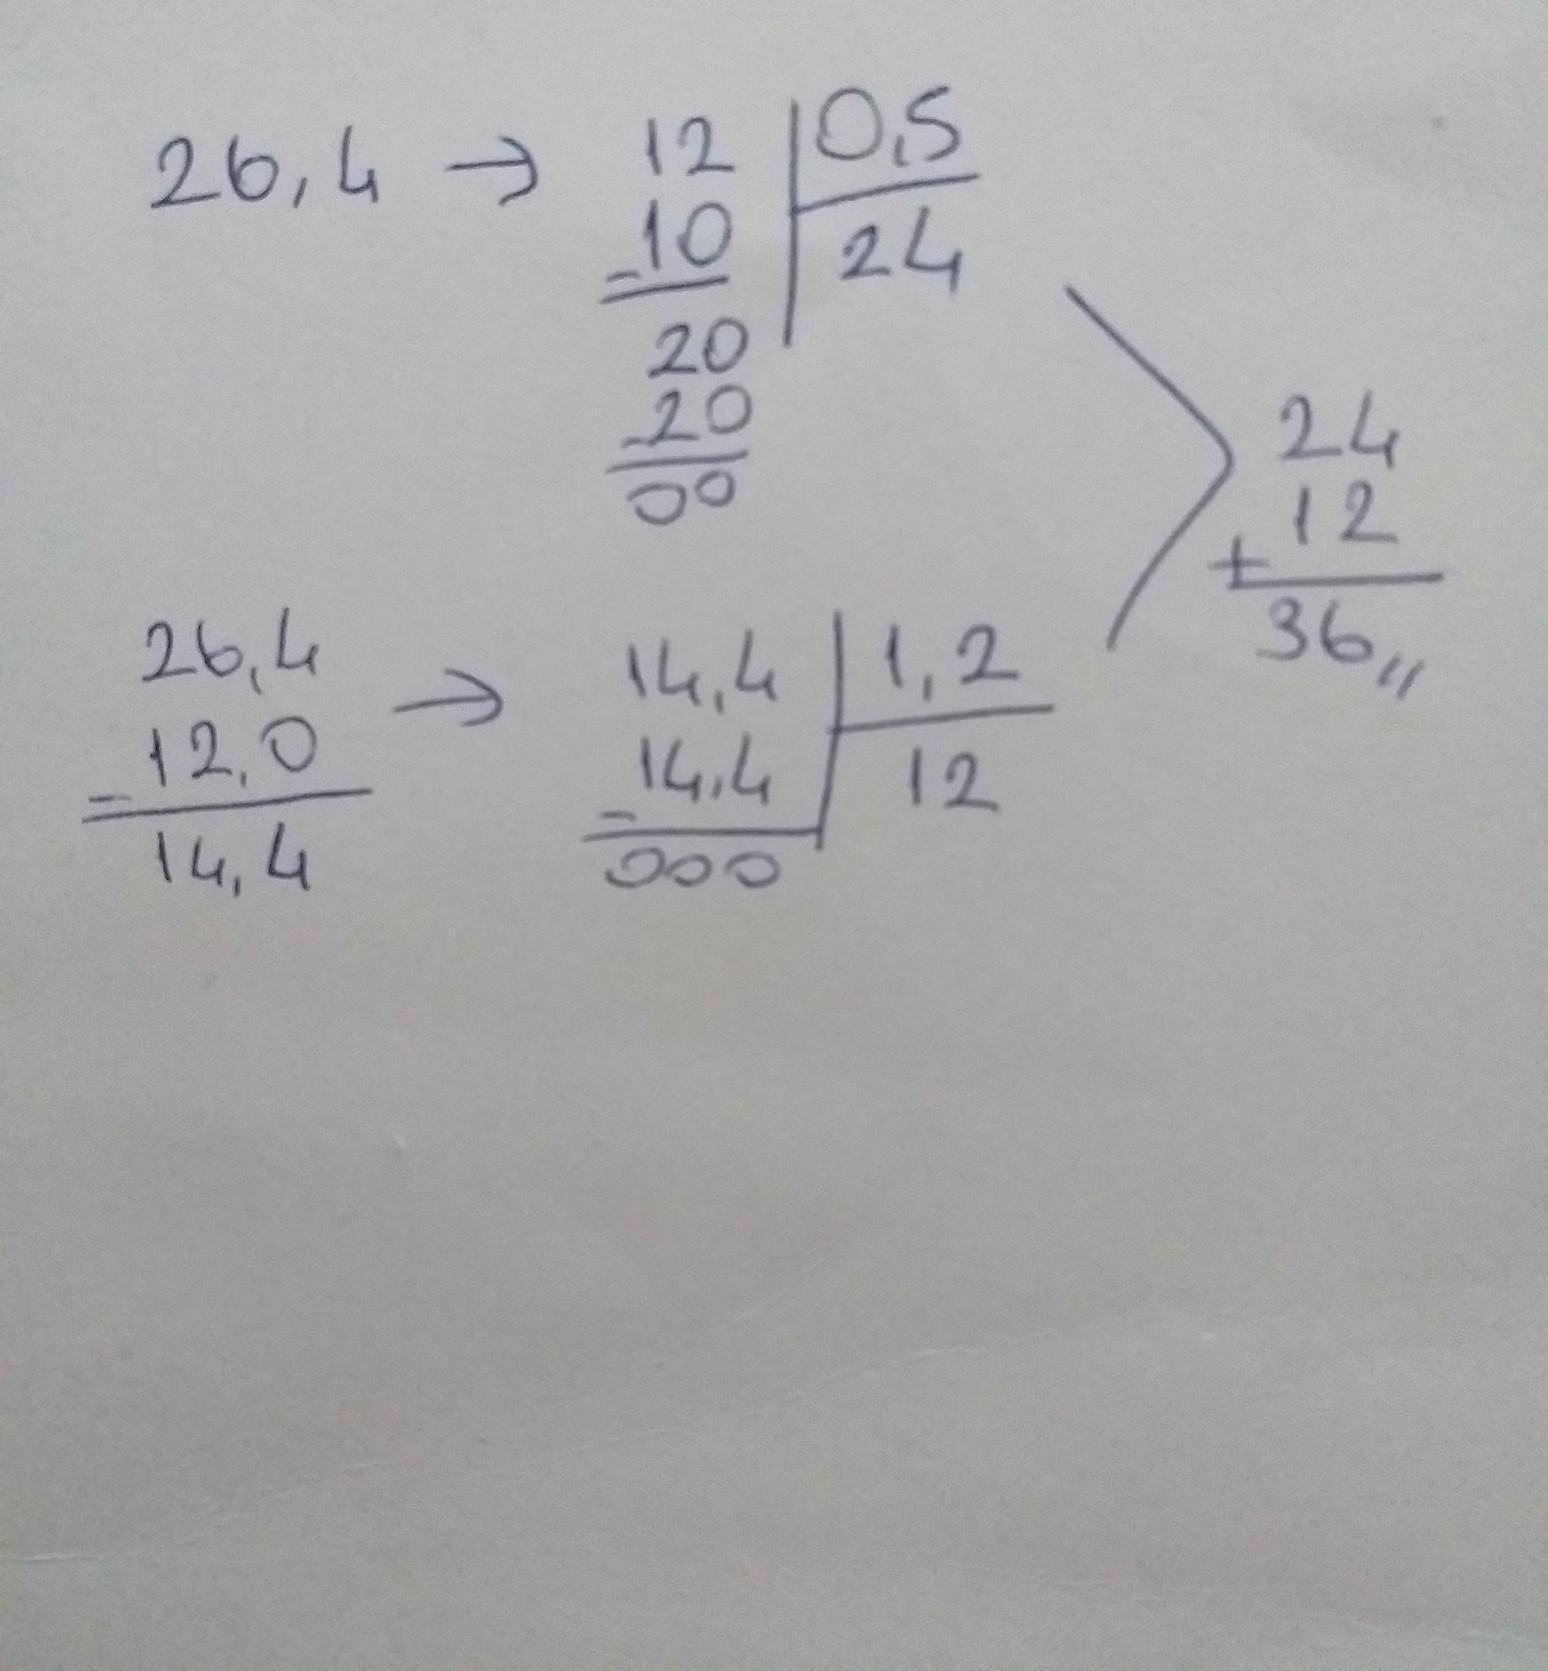 26,4 → 12 | 0,5
- 10 | 24
20
- 20
00
26,4 → 14,4 | 1,2
- 12,0
14,4
- 14,4 | 12
000
24
+ 12
36,,